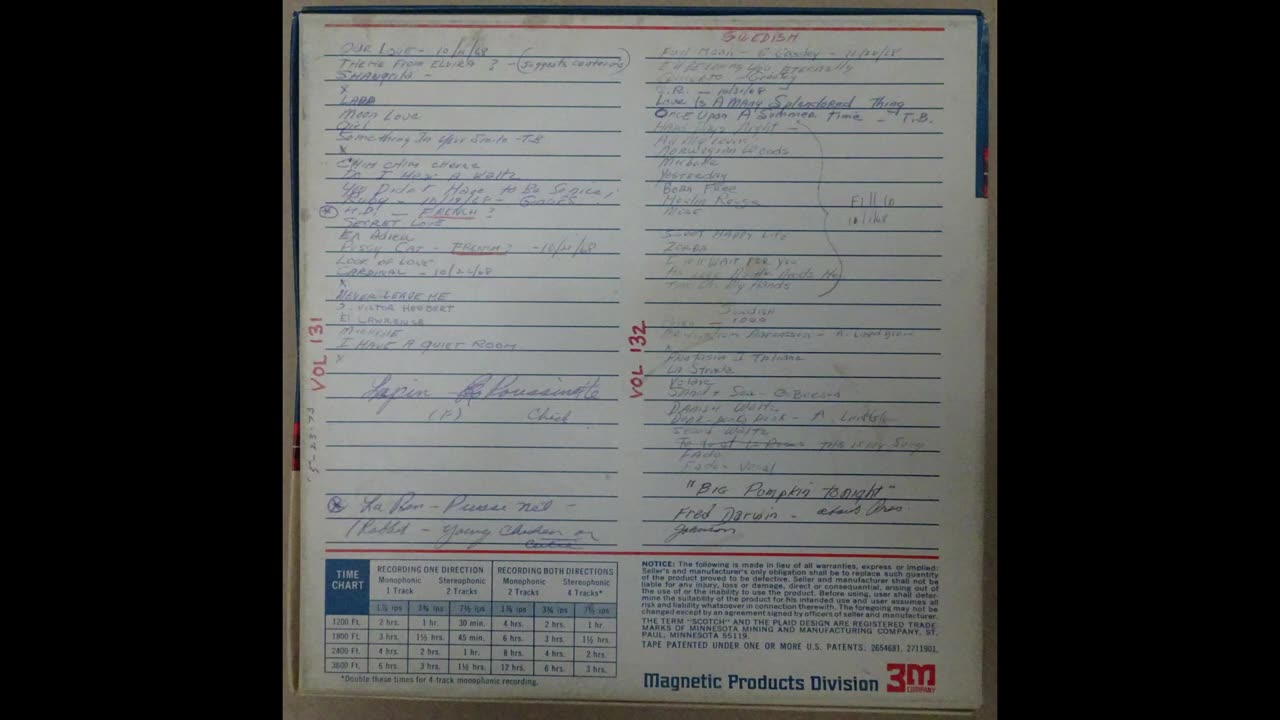 OUR LOVE - 10/11/68
THEME FROM ELVIRA ? - (Suggests cantering)
SHANGRILA -
X
LARA
Moon Love
Girl
Something In Your Smile - T.B.
X
CHIM CHIM CHEREE
Do I Hear A Waltz
You Didn't Have to Be So Nice;
Ruby - 10/19/68 -
* H.D. - FRENCH ?
SECRET LOVE
En Adieu
PUSSY CAT - FRENCH? - 10/21/68
LOOK OF LOVE
CARDINAL - 10/26/68
X
NEVER LEAVE ME
S. VICTOR HERBERT
El LAWRENCE
MICHELLE
I HAVE A QUIET ROOM
X
VOL 131
5-23-73
Lapin Poussinette
(F) Chick
* La Pen - Pusse net -
(Rabbit - Young Chicken or
Cutie
SWEDISH
Full Moon - 11/20/68
I'll Be Loving You Eternally
Concerto -
G.R. - 10/31/68 -
Love Is A Many Splendored Thing
Once Upon A Summer Time - T.B.
Hard Days Night -
All My Lovin'
Norwegian Woods
Michelle
Yesterday
Born Free
Moulin Rouge
More
Sweet Happy Life
ZORBA
I Will WAIT FOR YOU
Time On My Hands
Fill In
10/1/68
Swedish
VOL 132
Fantasia I Taliana
La Strada
Volare
Sand & Sea - G. Becaud
Danish Waltz
Waltz
This Is My Song
Fado
Fado - Vocal
"Big Pumpkin Tonight"
Fred Darwin - about Pres.
Johnson
TIME CHART
RECORDING ONE DIRECTION RECORDING BOTH DIRECTIONS
Monophonic 1 Track Stereophonic 2 Tracks Monophonic 2 Tracks Stereophonic 4 Tracks*
1⅞ ips 3¾ ips 7½ ips 1⅞ ips 3¾ ips 7½ ips
1200 Ft. 2 hrs. 1 hr. 30 min. 4 hrs. 2 hrs. 1 hr.
1800 Ft. 3 hrs. 1½ hrs. 45 min. 6 hrs. 3 hrs. 1½ hrs.
2400 Ft. 4 hrs. 2 hrs. 1 hr. 8 hrs. 4 hrs. 2 hrs.
3600 Ft. 6 hrs. 3 hrs. 1½ hrs. 12 hrs. 6 hrs. 3 hrs.
*Double these times for 4 track monophonic recording.
NOTICE: The following is made in lieu of all warranties, express or implied:
Seller's and manufacturer's only obligation shall be to replace such quantity
of the product proved to be defective. Seller and manufacturer shall not be
liable for any injury, loss or damage, direct or consequential, arising out of
the use of or the inability to use the product. Before using, user shall deter-
mine the suitability of the product for his intended use and user assumes all
risk and liability whatsoever in connection therewith. The foregoing may not be
changed except by an agreement signed by officers of seller and manufacturer.
THE TERM "SCOTCH" AND THE PLAID DESIGN ARE REGISTERED TRADE
MARKS OF MINNESOTA MINING AND MANUFACTURING COMPANY, ST.
PAUL, MINNESOTA 55119.
TAPE PATENTED UNDER ONE OR MORE U.S. PATENTS. 2654681, 2711901.
Magnetic Products Division 3M COMPANY